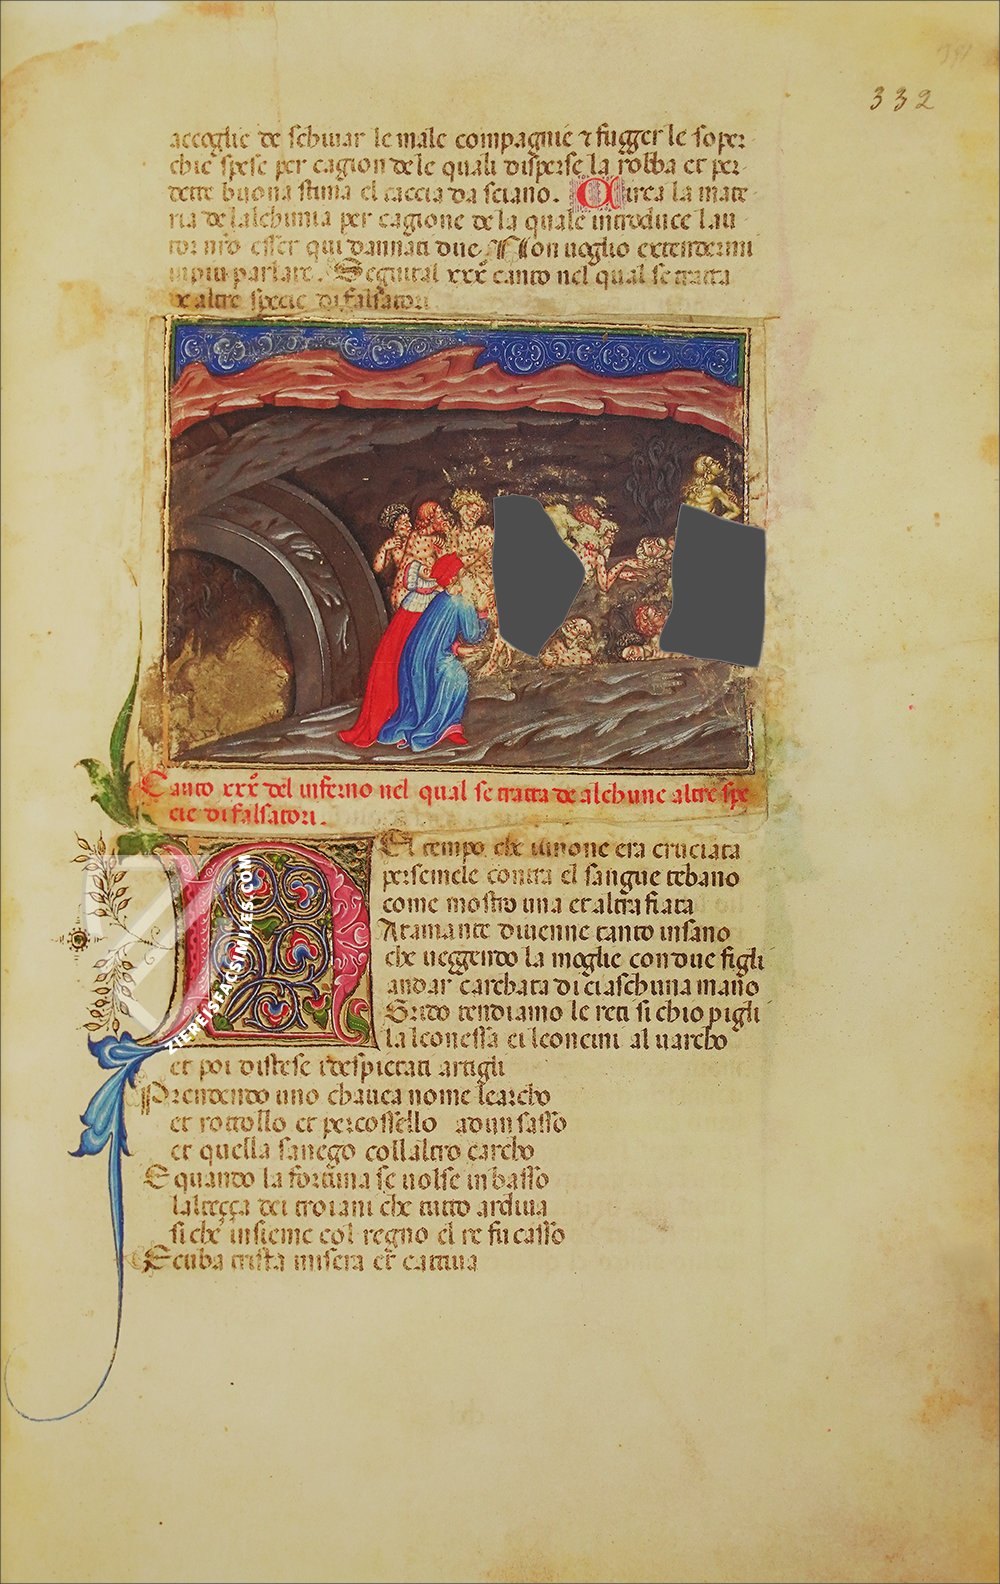 332
accoglie de schiuar le male compagnie ⁊ fugger le soper
chie spese per cagion de le quali disperse la robba et per
dette buona stima el caccia da sciano. Circa la mate
ria de lalchimia per cagione de la quale introduce lau
tor nr̄o esser qui dannati due Non uoglio extendermi
in piu parlare. Seguita l xxx̊ canto nel qual se tratta
de altre specie di falsatori
Canto xxx̊ del inferno nel qual se tratta de alchune altre spe
cie di falsatori.
NEl tempo che iunone era cruciata
per semele contra el sangue tebano
come mostro una et altra fiata
Atamante diuenne tanto insano
che ueggendo la moglie con due figli
andar carchata di ciaschuna mano
Grido tendiamo le reti si chio pigli
la leonessa ei leoncini al uarcho
et poi distese i despietati artigli
Prendendo uno chauea nome learcho
et rotollo et percossello ad un sasso
et quella sanego collaltro carcho
E quando la fortuna se uolse in basso
lalteçça dei troiani che tutto ardiua
si che insieme col regno el re fu casso
Ecuba trista misera et cattiua
ZIEREISFACSIMILES.COM